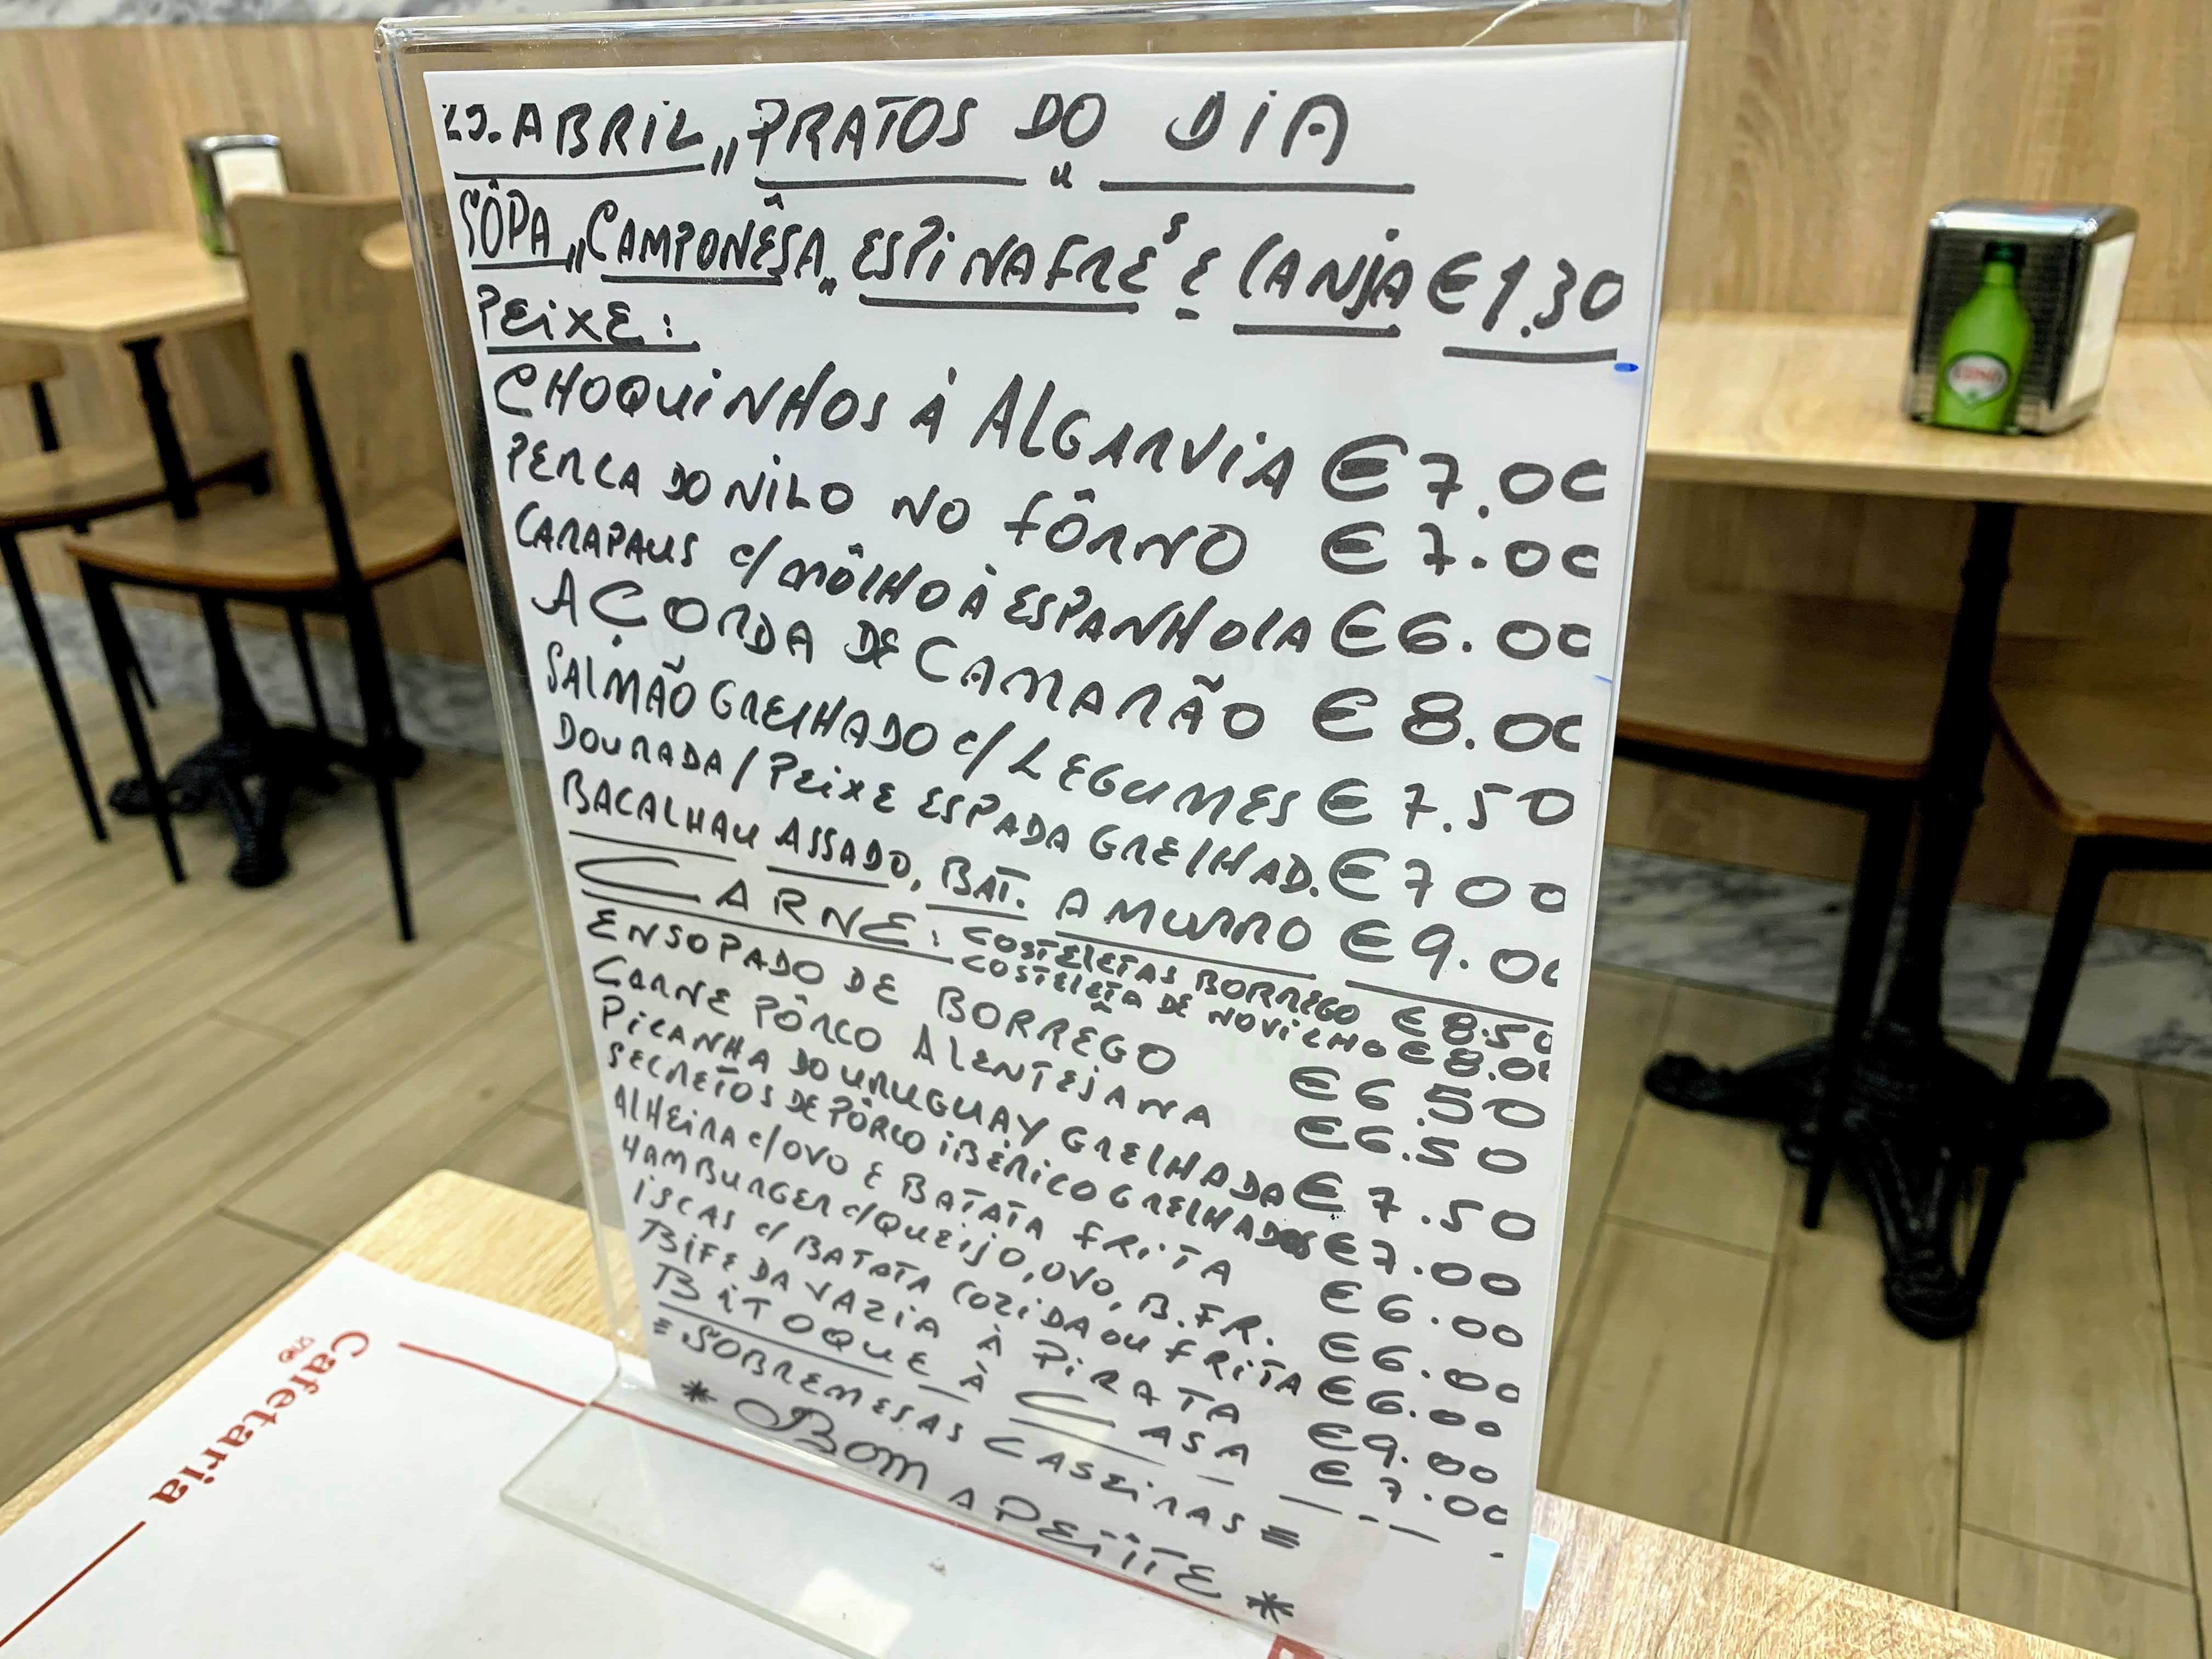 ABRIL,, PRATOS DO DIA
SÔPA ,,CAMPONÊSA,, ESPINAFRES E CANJA € 1.30
PEIXE:
CHOQUINHOS À ALGARVIA € 7.00
PERCA DO NILO NO FÔRNO € 7.00
CARAPAUS C/ MÔLHO À ESPANHOLA € 6.00
AÇORDA DE CAMARÃO € 8.00
SALMÃO GRELHADO C/ LEGUMES € 7.50
DOURADA / PEIXE ESPADA GRELHAD. € 7 00
BACALHAU ASSADO, BAT. A MURRO € 9.00
CARNE: COSTELETAS BORREGO € 8.50
COSTELETA DE NOVILHO € 8.00
ENSOPADO DE BORREGO € 6.50
CARNE PÔRCO ALENTEJANA € 6.50
PICANHA DO URUGUAY GRELHADA € 7.50
SECRETOS DE PÔRCO IBÉRICO GRELHADOS € 7.00
ALHEIRA C/ OVO E BATATA FRITA € 6.00
HAMBURGER C/ QUEIJO, OVO, B. FR. € 6.00
ISCAS C/ BATATA COZIDA OU FRITA € 6.00
BIFE DA VAZIA À PIRATA € 9.00
BITOQUE À CASA € 7.00
= SOBREMESAS CASEIRAS =
* BOM APETITE *
Cafetaria